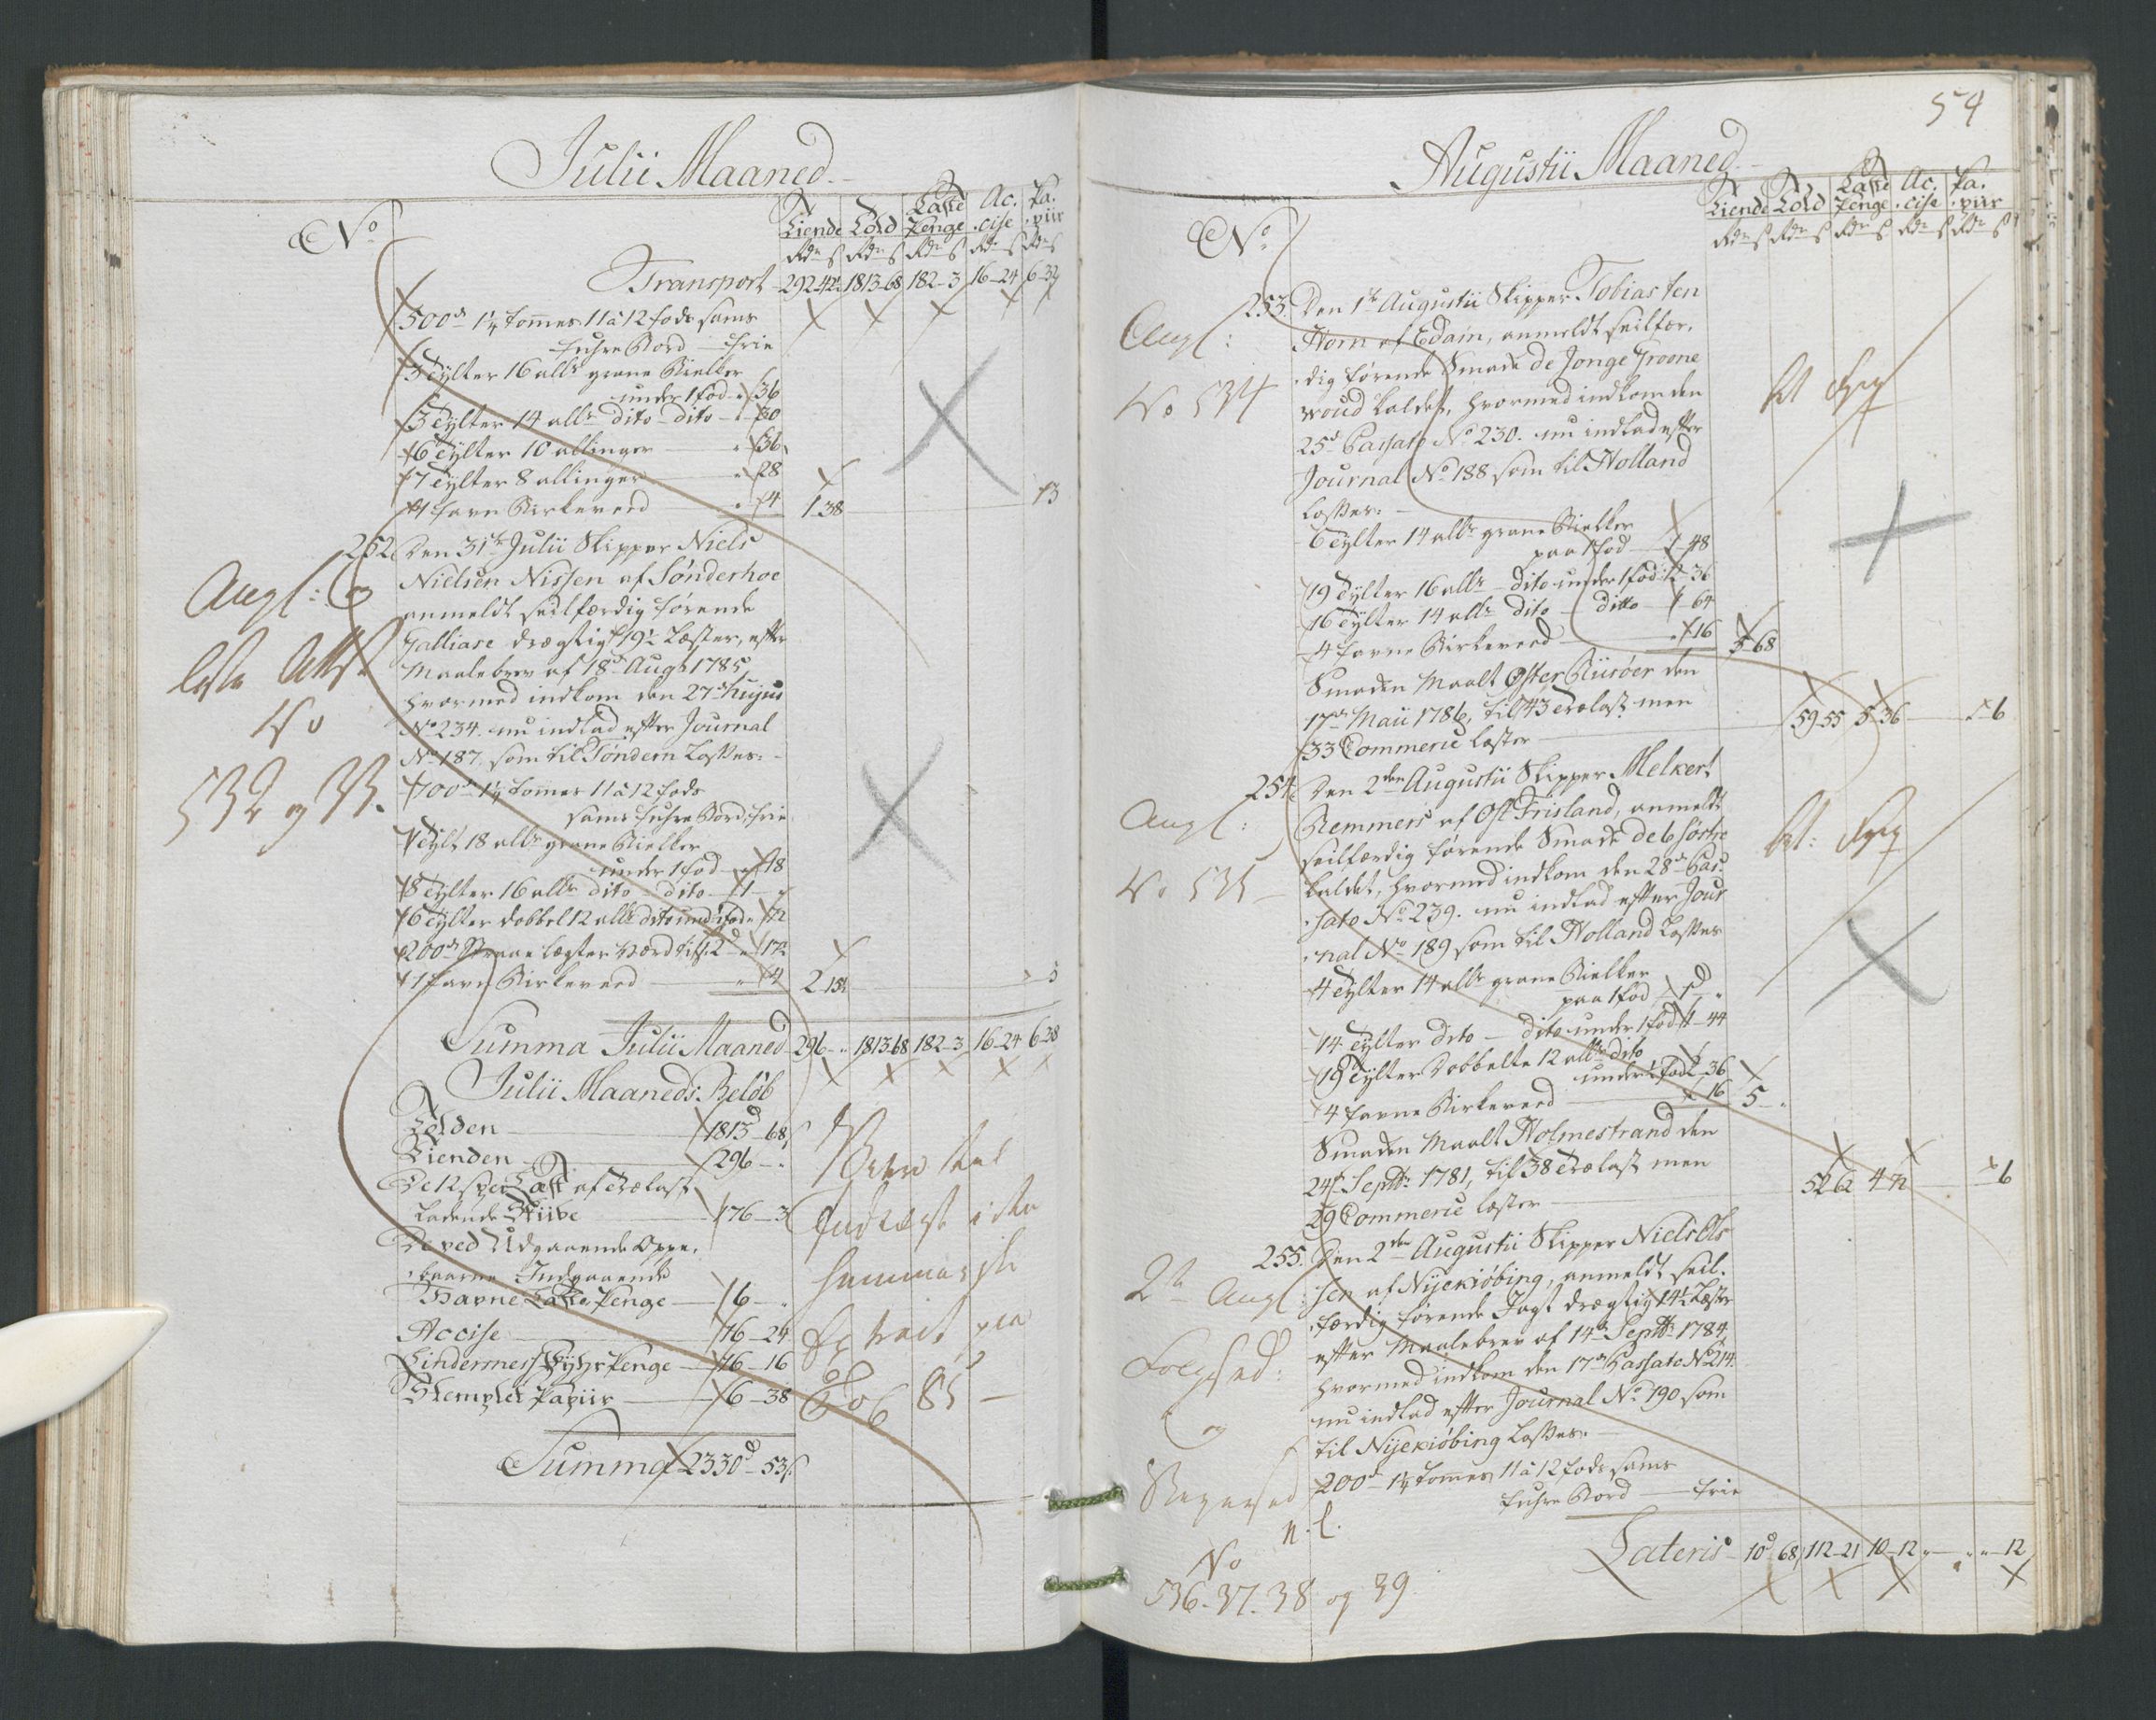 Julii Maaned.
No
Tiende Told Laste Penge Ac. cise Pa. piir
Rdr s Rdr s Rdr s Rdr s Rdr s
Transport 292-42 1813-68 182-3 16-24 6-32
500d 1¼ tommer 11 à 12 fods sams
fuhre Bord frie
3 tylter 16 allr grane Bielker
under 1 fod - 36
3 tylter 14 allr dito - dito - 30
6 tylter 10 allinger 36
7 tylter 8 allinger 28
1 favn Birkeveed 4 1-38 3
252. Den 31te Julii Skipper Niels
Nielsen Nissen af Sønderhoe
anmeldt seilfærdig førende
Galliase drægtig 19½ Læster, efter
Maalebrev af 18d Augt 1785
hvormed indkom den 27d hujus
No 234. nu indlad efter Journal
No 187. som til Tøndern Losses.
Angl: og
No
532 og 33.
700d 1¼ tommer 11 à 12 fods
sams fuhre Bord frie
1 tylt 18 allr grane Bielker
under 1 fod 18
8 tylter 16 allr dito - dito 1
6 tylter dobbel 12 allr dito und 1 fod 72
200d Grane lægter værd 12
1 favn Birkeveed 4 2 3
Summa Julii Maaned 296 - 1813-68 182-3 16-24 6-38
Julii Maaneds Beløb
Tolden 1813-68
Tienden 296 -
De 12 s per Læst af Trælast
ladende Skiibe 176-3
De ved Udgaaende Oppe.
baarne Indgaaende
Havne Laste Penge 6 -
Accise 16-24
Lindernes Fyhr Penge 16-16
Stemplet Papiir 6-38
Summa 2330-53
Extract paa
85
54
Augustii Maaned.
No
Tiende Told Laste Penge Ac. cise Pa. piir
Rdr s Rdr s Rdr s Rdr s Rdr s
253. Den 1te Augustii Skipper Tobias ten
Horn af Edam, anmeldt seilfær.
dig førende Smade de Jonge Froone
woud kaldet, hvormed indkom den
25d Passato No 230. nu indlad efter
Journal No 188 som til Holland
Losses.
Angl:
No 534
6 tylter 14 allr grane Bielker
paa 1 fod 1-48
19 tylter 16 allr dito under 1 fod 2-36
16 tylter 14 allr dito ditto 1-64
4 favne Birkeveed 16 5-68
Smaden Maalt Øster Riisøer den
17d Maii 1786, til 43 Trælast men
33 Commerce læster 59-55 5-36 6
254. Den 2den Augustii Skipper Melkert
Remmers af Ost Frisland, anmeldt
seilfærdig førende Smade de 6
kaldet, hvormed indkom den 28d Pas.
sato No 239. nu indlad efter Jour
nal No 189 som til Holland Losses
Angl:
No 535
4 tylter 14 allr grane Bielker
paa 1 fod 1
14 tylter dito - dito under 1 fod 1-44
19 tylter Dobbelte 12 allr dito
under 1 fod 2-36
4 favne Birkeveed 16 5 -
Smaden Maalt Holmestrand den
24 Septbr 1781, til 38 Trælast men
29 Commerce læster 52-62 4-72 6
255. Den 2den Augustii Skipper Niels Ols
sen af Nijekiøbing, anmeldt seil.
færdig førende Jagt drægtig 14½ Læster
efter Maalebrev af 14d Septbr 1784,
hvormed indkom den 17d Passato No 214.
nu indlad efter Journal No 190 som
til Nijekiøbing Losses.
2de Angl:
og
No
536. 37. 38 og 39
200d 1¼ tommer 11 à 12 fods sams
fuhre Bord frie
Lateris 10-68 112-21 10-12 - 12